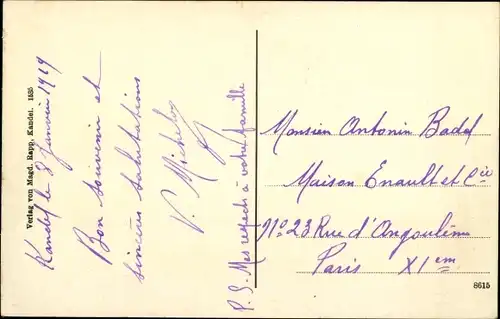 Verlag von Magd. Rapp, Kandel. 1535
Kandel le 8 Janvier 1919
Bon souvenir et
sincères salutations
V. Michelo
P.S. Mes respects à votre famille
Monsieur Antonin Badel
Maison Enault et Cie
No 23 Rue d'Angoulême
Paris XIem
8615